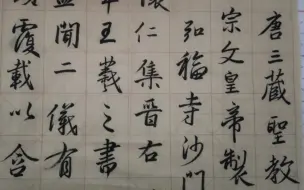 唐三藏聖教
宗文皇帝製
弘福寺沙門
懷仁集晉右
軍王羲之書
蓋聞二儀有
覆載以含